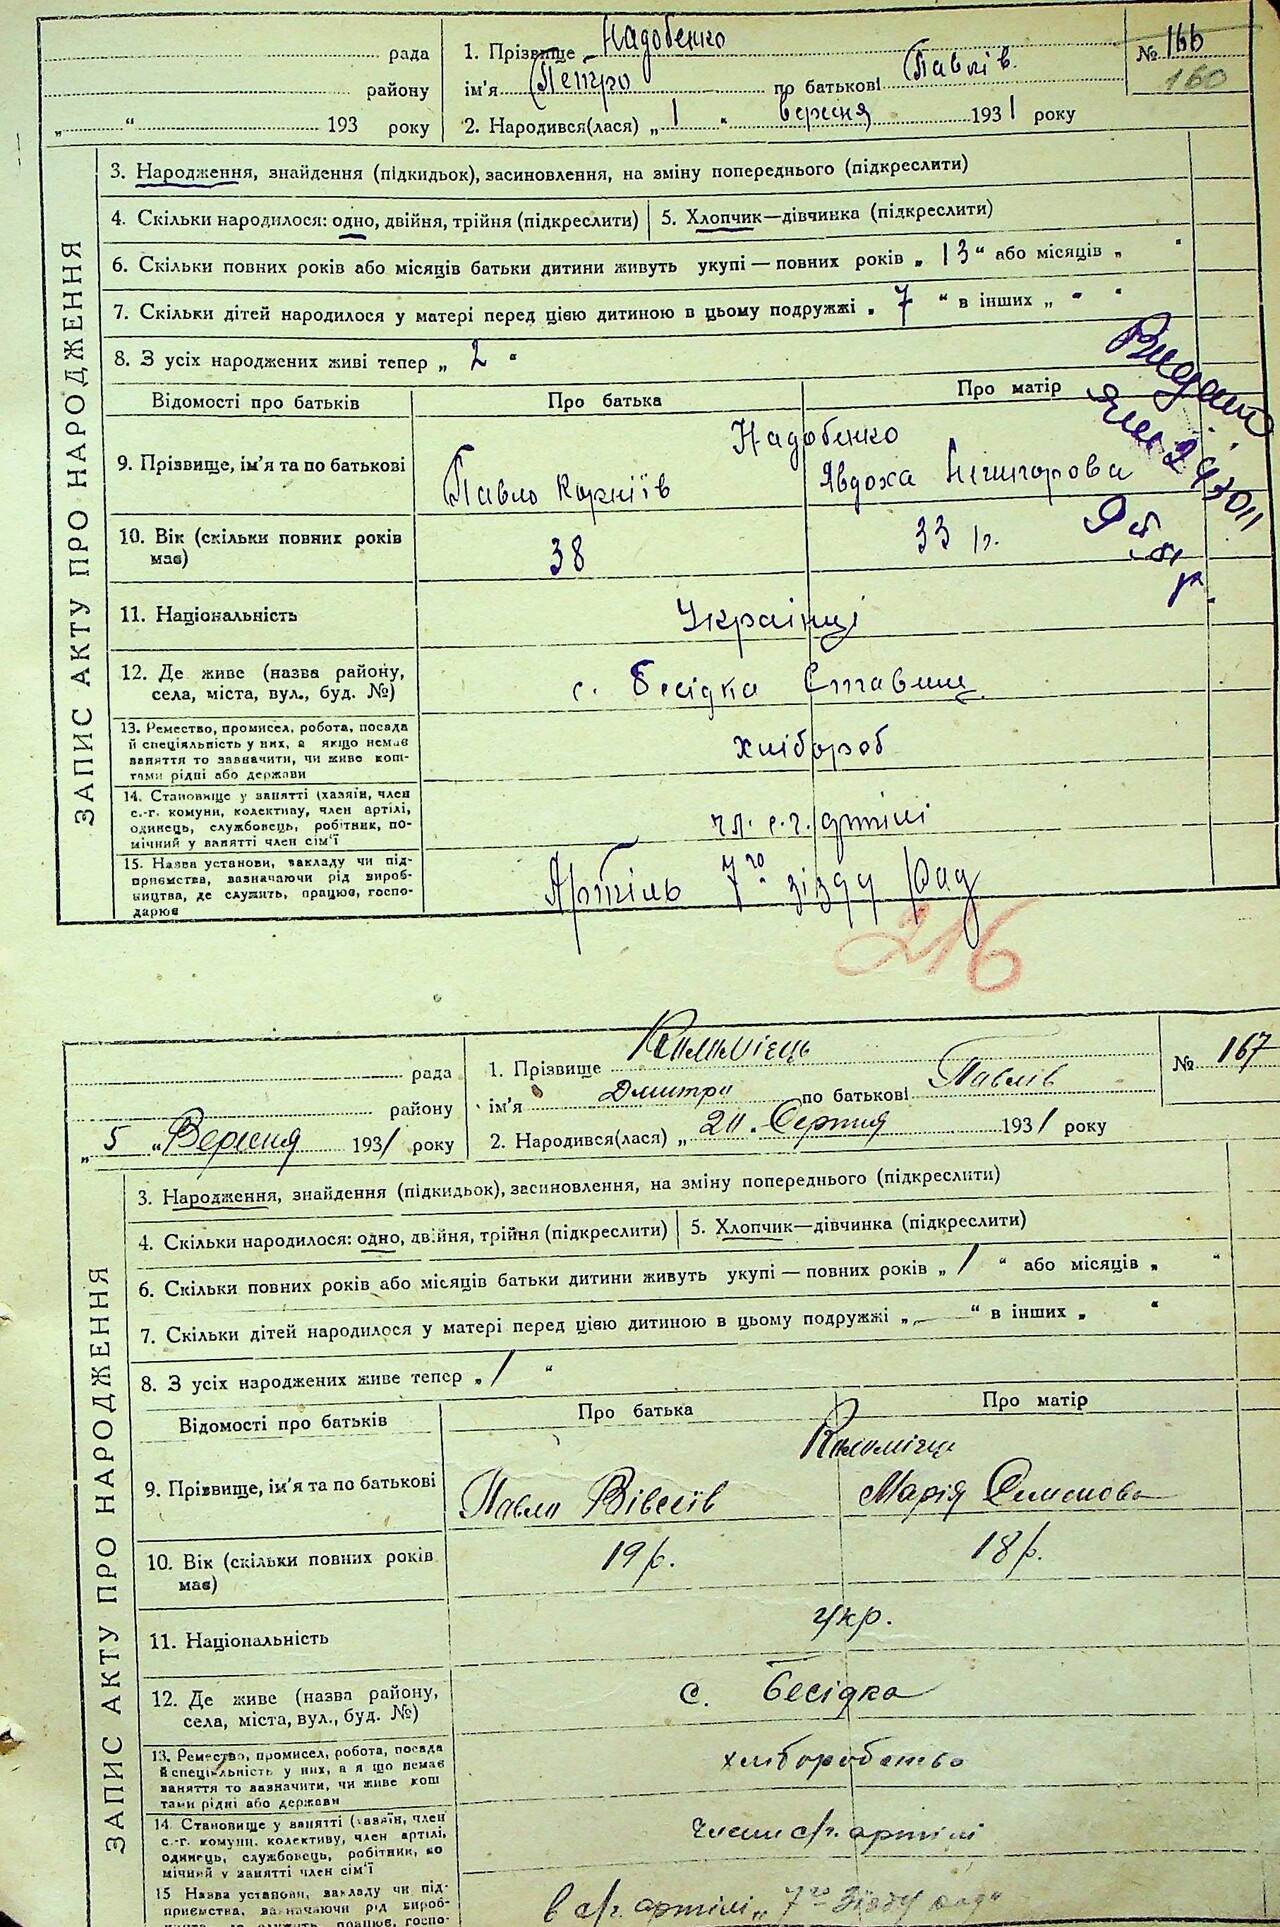 рада
1. Прізвище Надобенко
№ 166
160
району
ім'я Петро по батькові Павлів.
„ “ 193 року
2. Народився(лася) „ 1 “ вересня 1931 року
ЗАПИС АКТУ ПРО НАРОДЖЕННЯ
3. Народження, знайдення (підкидьок), засиновлення, на зміну попереднього (підкреслити)
4. Скільки народилося: одно, двійня, трійня (підкреслити)
5. Хлопчик—дівчинка (підкреслити)
6. Скільки повних років або місяців батьки дитини живуть укупі — повних років „ 13 “ або місяців „ “
7. Скільки дітей народилося у матері перед цією дитиною в цьому подружжі „ 7 “ в інших „ “
8. З усіх народжених живі тепер „ 2 “
Відомості про батьків
Про батька
Про матір
Видано
9. Прізвище, ім'я та по батькові
Надобенко
Павло Корніїв
Явдоха
10. Вік (скільки повних років має)
38
33 р.
11. Національність
Українці
12. Де живе (назва району,
села, міста, вул., буд. №)
с. Бесідка Ставищ.
13. Ремество, промисел, робота, посада
й спеціяльність у них, а якщо немає
заняття то зазначити, чи живе кош-
тами рідні або держави
хлібороб
14. Становище у занятті (хазяїн, член
с.-г. комуни, колективу, член артілі,
одинець, службовець, робітник, по-
мічний у занятті член сім'ї
чл. с.г. артілі
15. Назва установи, закладу чи під-
приємства, зазначаючи рід вироб-
ництва, де служить, працює, госпо-
дарює
Артіль 7го зізду рад
216
рада
1. Прізвище Коломієць
№ 167
району
ім'я Дмитро по батькові Павлів
„ 5 „ Вересня 1931 року
2. Народився(лася) „ 20 . Серпня 1931 року
ЗАПИС АКТУ ПРО НАРОДЖЕННЯ
3. Народження, знайдення (підкидьок), засиновлення, на зміну попереднього (підкреслити)
4. Скільки народилося: одно, двійня, трійня (підкреслити)
5. Хлопчик—дівчинка (підкреслити)
6. Скільки повних років або місяців батьки дитини живуть укупі — повних років „ 1 “ або місяців „ “
7. Скільки дітей народилося у матері перед цією дитиною в цьому подружжі „ — “ в інших „ “
8. З усіх народжених живе тепер „ 1 “
Відомості про батьків
Про батька
Про матір
9. Прізвище, ім'я та по батькові
Коломійці
Павло
Марія Семенова
10. Вік (скільки повних років має)
19 р.
18 р.
11. Національність
Укр.
12. Де живе (назва району,
села, міста, вул., буд. №)
с. Бесідка
13. Ремество, промисел, робота, посада
й спеціяльність у них, а якщо немає
заняття то зазначити, чи живе кош
тами рідні або держави
хліборобство
14. Становище у занятті (хазяїн, член
с.-г. комуни, колективу, член артілі,
одинець, службовець, робітник, по
мічний у занятті член сім'ї
члени с/г. артілі
15 Назва установи, закладу чи під-
приємства, зазначаючи рід вироб-
ництва, де служить, працює, госпо-
в с/г. артілі „7го Зізду рад“